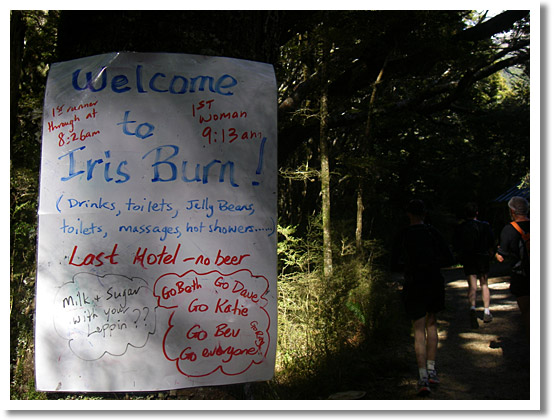 Welcome
1st runner
through at
8:26am
to
1ST
WOMAN
9:13am
Iris Burn!
(Drinks, toilets, Jelly Beans,
toilets, massages, hot showers.....)
Last Hotel - no beer
Milk + Sugar
with your
Leppin??
Go Beth
Go Dave
Go Katie
Go Bev
Go everyone